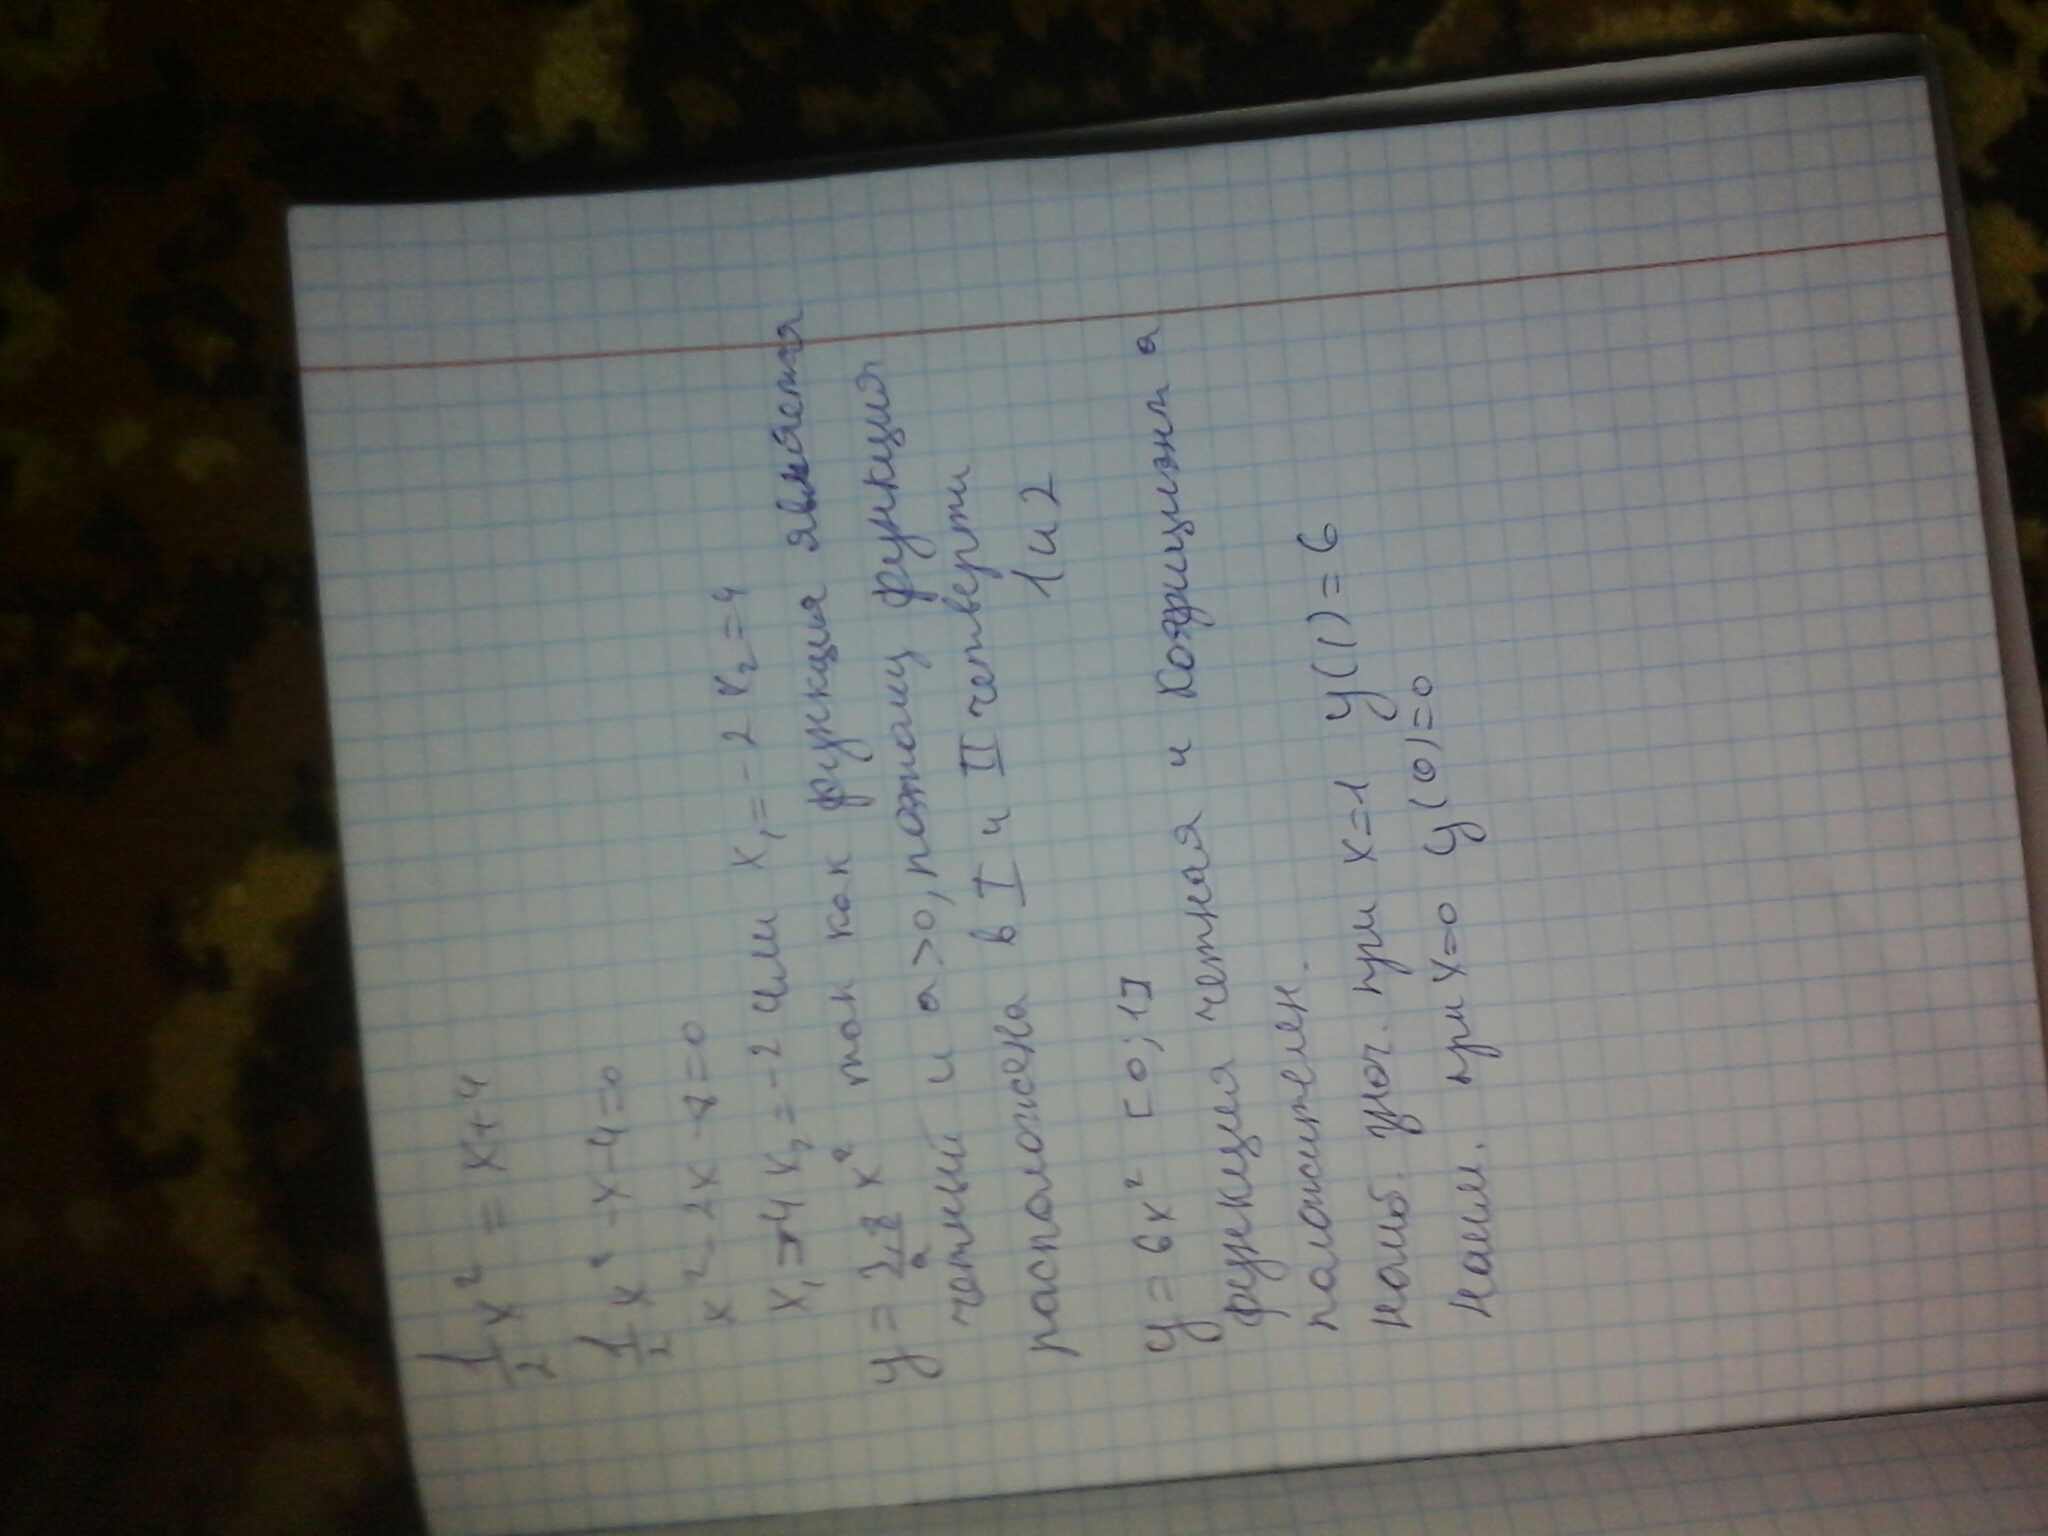 1/2 x² = x+4
1/2 x² -x-4=0
x²-2x-8=0
x₁=4 x₂=-2 или x₁=-2 x₂=4
y = 2,8 x² так как функция является
a
четный и a>0, потому функция
расположена в I и II четверти
1 и 2
y = 6x² [0;1]
функция четная и коэфициэнт a
положителен.
наиб. знач. при x=1 y(1)=6
наим. при x=0 y(0)=0